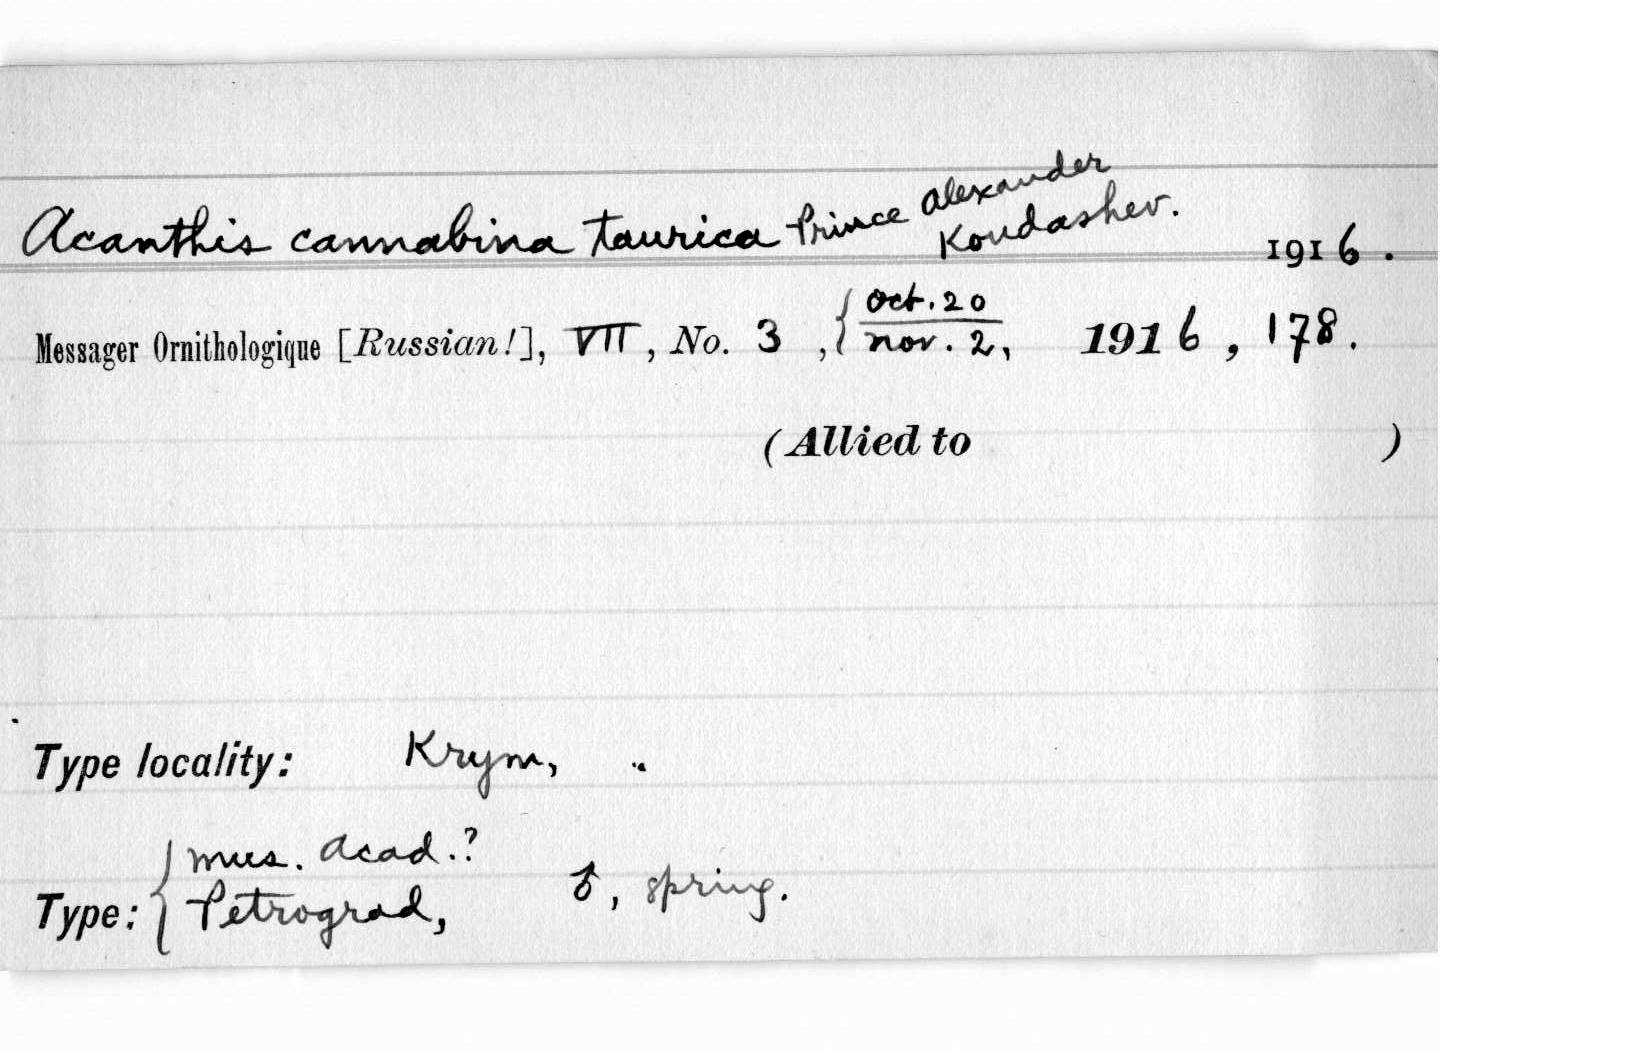 Acanthis cannabina taurica Prince Alexander Koudashev. 1916.
Messager Ornithologique [Russian!], VII, No. 3, { Oct. 20 / Nov. 2, 1916, 178.
(Allied to )
Type locality: Krym, ..
Type: { Mus. Acad.? Petrograd, ♂, spring.